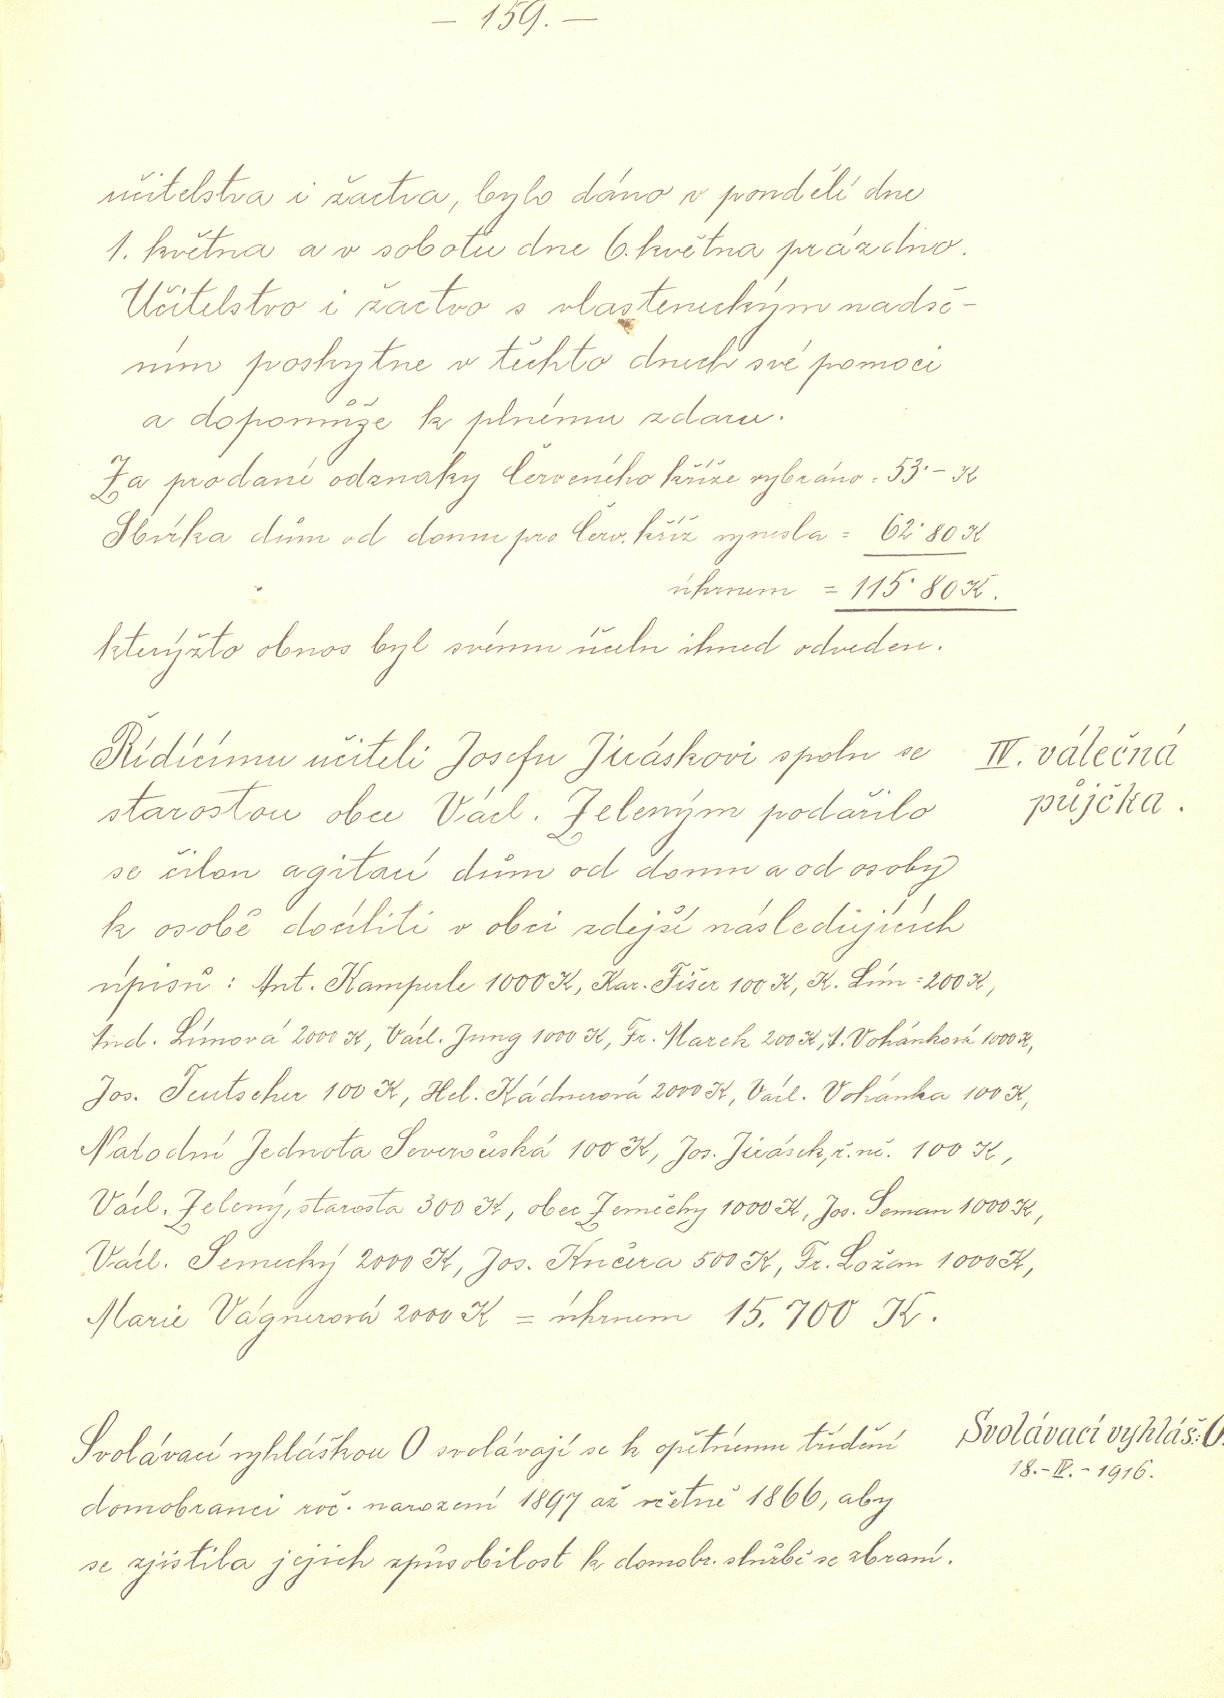 — 159. —
učitelstva i žactva, bylo dáno v pondělí dne
1. května a v sobotu dne 6. května prázdno.
Učitelstvo i žactvo s vlasteneckým nadše-
ním poskytne v těchto dnech své pomoci
a dopomůže k plnému zdaru.
Za prodané odznaky Červeného kříže vybráno = 53·– K
Sbírka dům od domu pro Červ. kříž vynesla = 62·80 K
úhrnem = 115·80 K.
kterýžto obnos byl svému účelu ihned odveden.
Řídícímu učiteli Josefu Jiráskovi spolu se
starostou obce Václ. Zeleným podařilo
se čilou agitací dům od domu a od osoby
k osobě docíliti v obci zdejší následujících
úpisů: Ant. Kamperle 1000 K, Kar. Fišer 100 K, K. Lím = 200 K,
And. Límová 2000 K, Václ. Jung 1000 K, Fr. Marek 200 K, A. Vohánková 1000 K,
Jos. Teutscher 100 K, Hel. Kádnerová 2000 K, Václ. Vohánka 100 K,
Národní Jednota Severočeská 100 K, Jos. Jirásek, ř. uč. 100 K,
Václ. Zelený, starosta 300 K, obec Zeměchy 1000 K, Jos. Seman 1000 K,
Václ. Semecký 2000 K, Jos. Kučera 500 K, Fr. Ložan 1000 K,
Marie Vágnerová 2000 K = úhrnem 15.700 K.
IV. válečná
půjčka.
Svolávací vyhláškou O svolávají se k opětnému třídění
domobranci roč. narození 1897 až včetně 1866, aby
se zjistila jejich způsobilost k domobr. službě se zbraní.
Svolávací vyhláš.: O.
18.-IV.-1916.